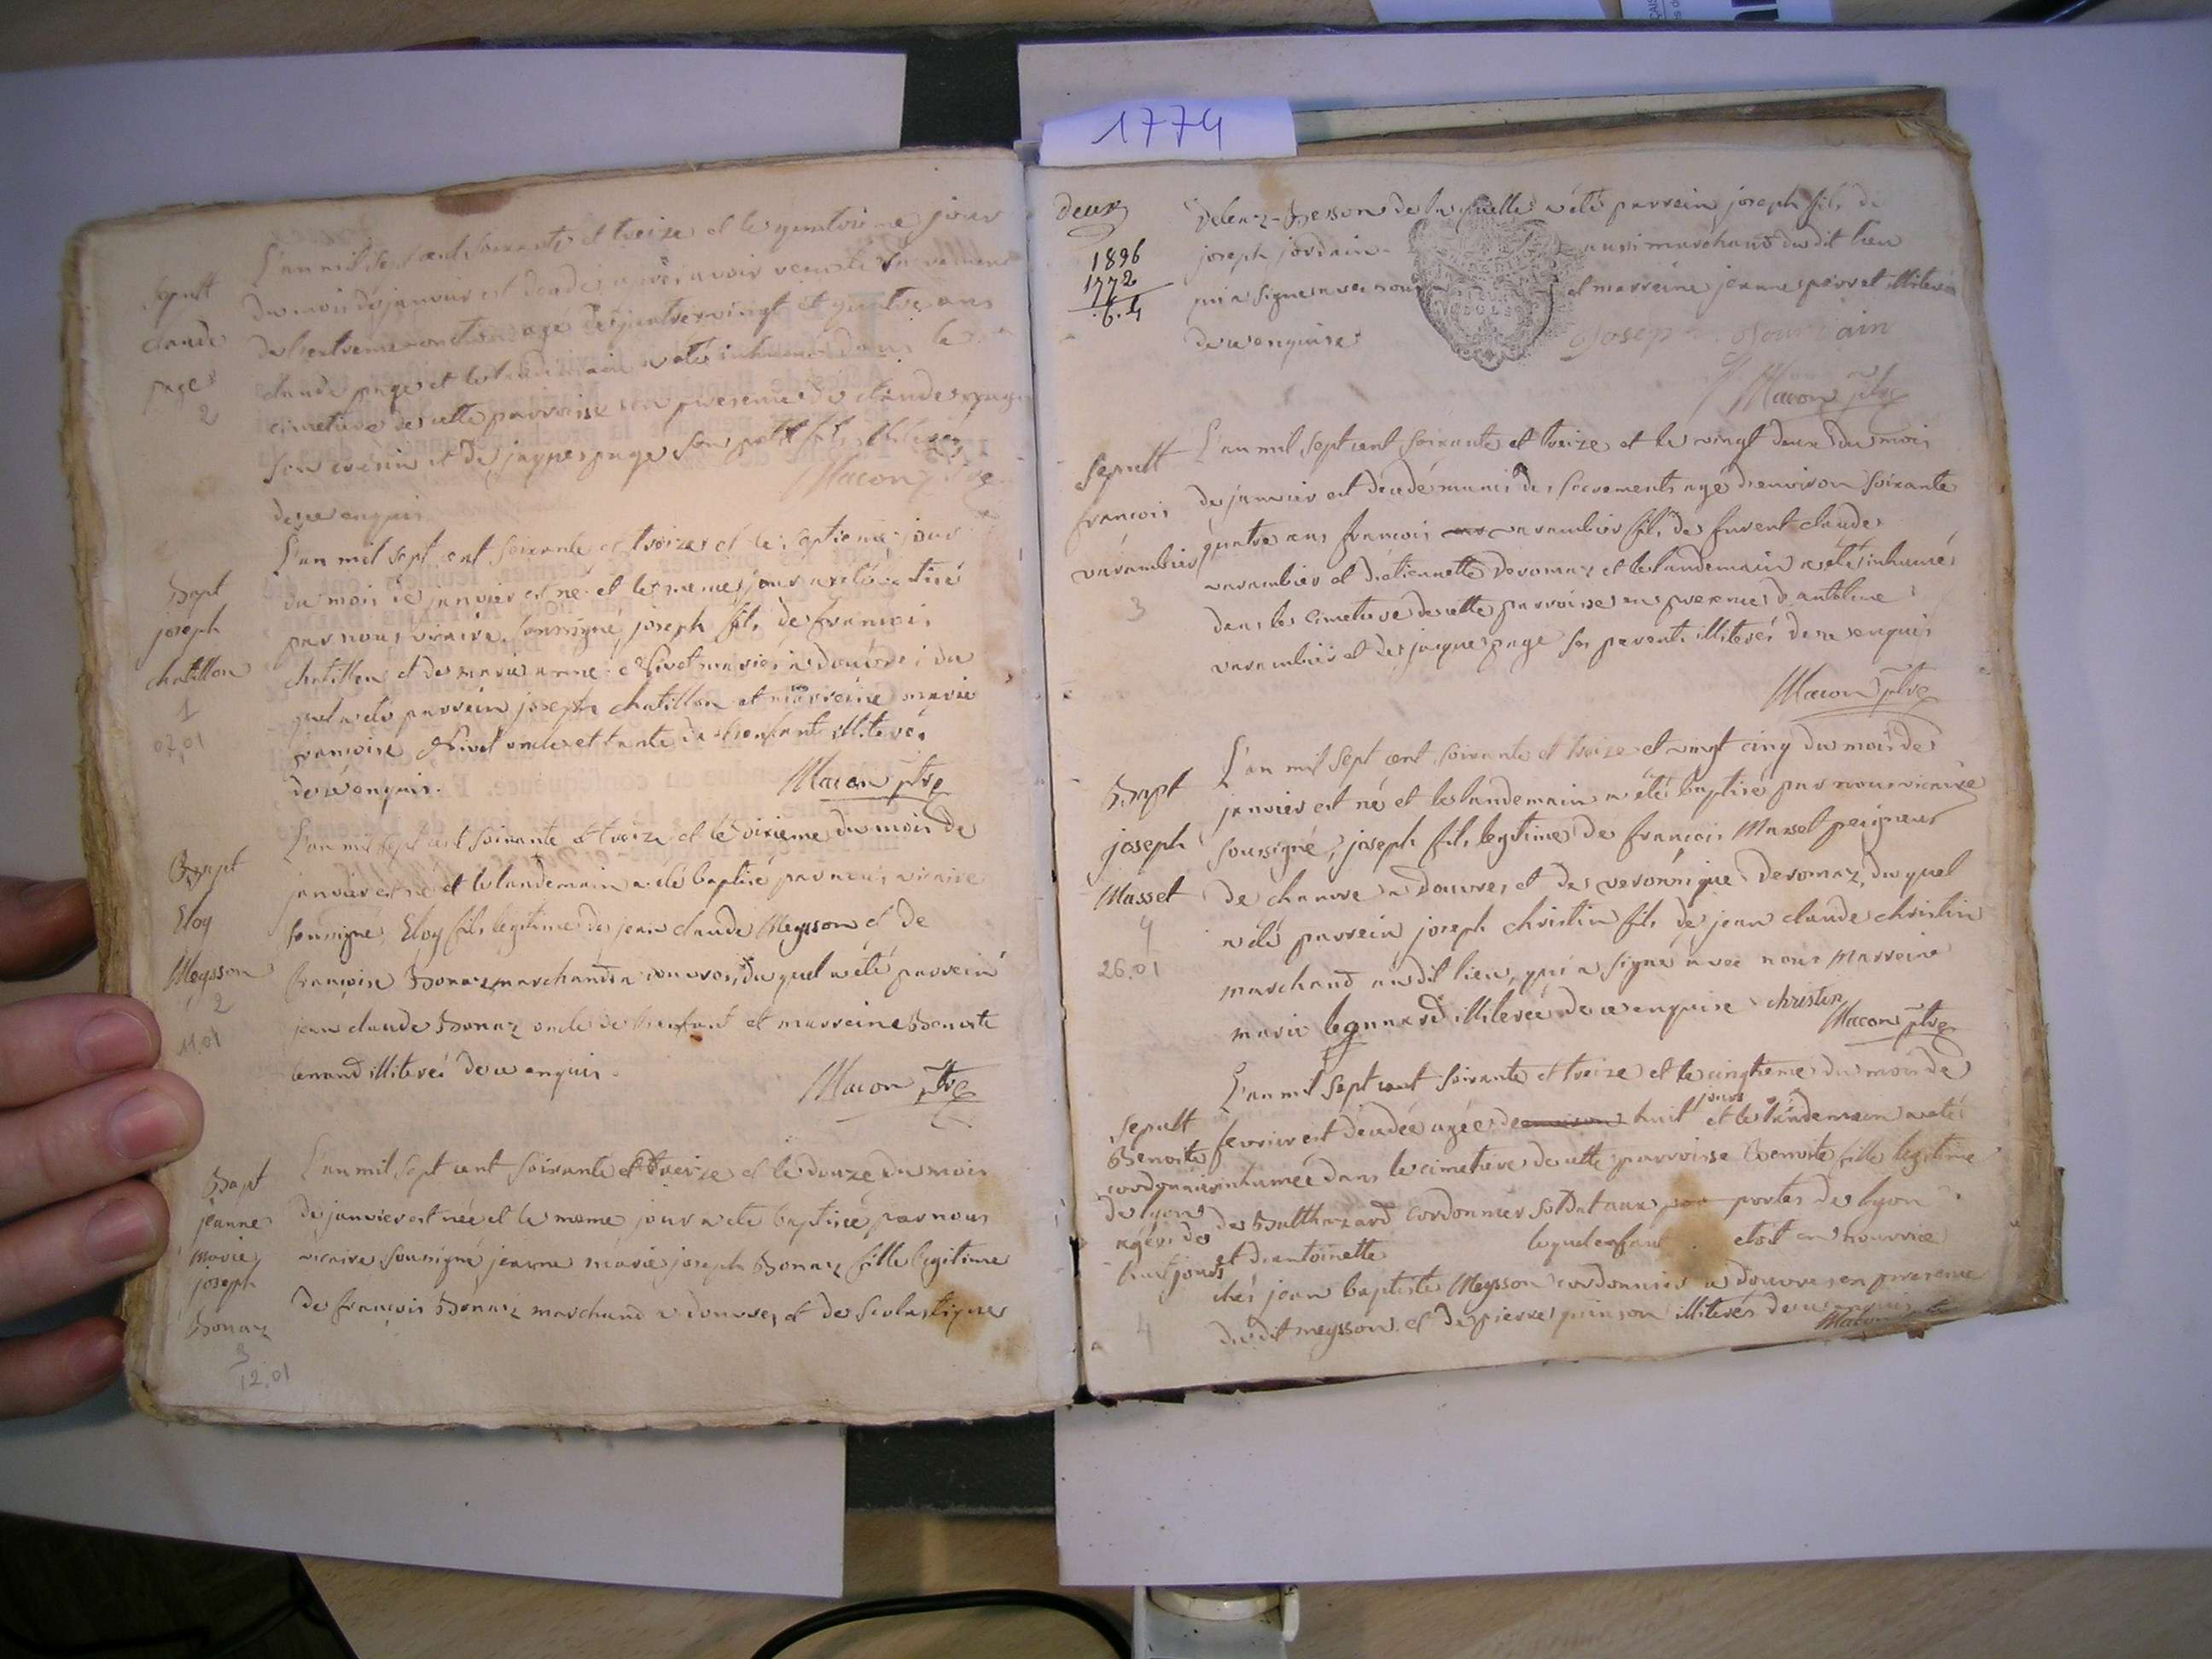 1774
Sepult
claude
page
2
L'an mil sept cent soixante et treize et le quatorsieme jour
du mois de janvier est decedé apres avoir recu le sacrement
de l'extreme onction agé de quatrevingt et quatre ans
claude page et le landemain a été inhumé dans le
cimetiere de cette parroisse en presence de claude page
son cousin et de jaques page son petit fils illiterés
de ce enquis
Macon ptre
Bapt
joseph
chatillon
1
07.01
L'an mil sept cent soixante et treize et le septieme jour
du mois de janvier est né et le meme jour a été batisé
par nous vicaire soussigné joseph fils de francois
chatillon et de marie anne mariés a douvre; du
quel a été parrein joseph chatillon et marreine marie
francoise oncle et tante de l'enfant illiterés
de ce enquis.
Macon ptre
Bapt
Eloy
Meysson
2
11.01
L'an mil sept cent soixante et treize et le dixieme du mois de
janvier est né et le landemain a été baptisé par nous vicaire
soussigné, Eloy fils legitime de jean claude Meysson et de
françoise Bonaz marchand a douvres, du quel a été parrein
jean claude Bonaz oncle de l'enfant et marreine Benoite
illiterés de ce enquis.
Macon ptre
Bapt
jeanne
marie
joseph
Bonaz
3
12.01
L'an mil sept cent soixante et treize et le douze du mois
de janvier est née et le meme jour a été baptisée par nous
vicaire soussigné jeanne marie joseph Bonaz fille legitime
de françois Bonaz marchand a douvres et de Scolastique
deux
1896
1772
6.4
Besson de laquelle a été parrein joseph fils de
joseph jordain aussi marchand dudit lieu
qui a signé avec nous et marreine jeanne perret illiterée
de ce enquise.
Joseph Jourdain
Macon ptre
Sepult
francois
varambier
3
L'an mil sept cent soixante et treize et le vingt deux du mois
de janvier est decedé muni des sacrements agé d'environ soixante
quatre ans francois varambier fils de furent claude
varambier et d'etiennette Deromaz et le landemain a été inhumé
dans le cimetiere de cette parroisse en presence d'antelme
varambier et de jaque page ses parents illiterés de ce enquis
Macon ptre
Bapt
joseph
Masset
4
26.01
L'an mil sept cent soixante et treize et vingt cinq du mois de
janvier est né et le landemain a été baptisé par nous vicaire
soussigné, joseph fils legitime de francois Masset peigneur
de chanvre a douvres et de veronnique Deromaz, du quel
a été parrein joseph christin fils de jean claude christin
marchand audit lieu, qui a signé avec nous marreine
marie illiterée de ce enquise christin
Macon ptre
Sepult
Benoite
cordonnier
de lyon
agée de
huit jours
4
L'an mil sept cent soixante et treize et le cinqtieme du mois de
fevrier est decedée agée de huit jours et le landemain a été
inhumée dans le cimetiere de cette parroisse Benoite fille legitime
de Balthazard cordonnier soldat aux portes de lyon
et d'antoinette lequel enfant etoit en nourrice
chés jean baptiste Meysson cordonnier a douvre en presence
du dit meysson et de pierre quinson illiterés de ce enquis
Macon ptre